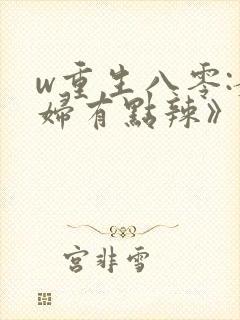 w重生八零:
婦有點辣》
宮非雪